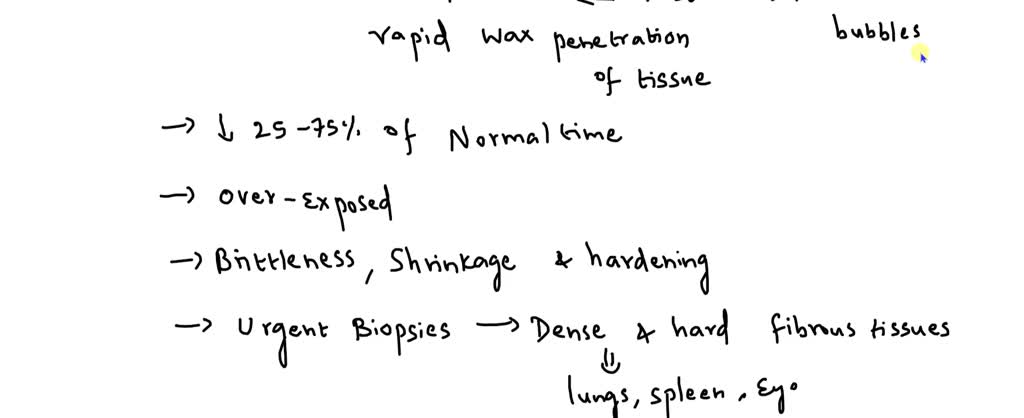 rapid wax penetration bubbles
of tissue
→ ↓ 25-75% of Normal time
→ Over-Exposed
→ Brittleness, Shrinkage & hardening
→ Urgent Biopsies → Dense & hard fibrous tissues
⇓
lungs, spleen, Eye